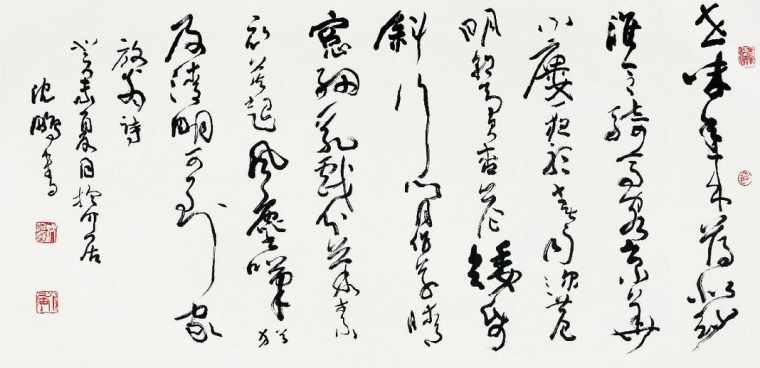 世味年來薄似紗
誰令騎馬客京華
小廔一夜聽春雨深巷
明朝賣杏花矮紙
斜行閒作草晴
窗細乳戲分茶素
衣莫起風塵嘆猶
及清明可到家
放翁詩
癸未夏日於介居
沈鵬書